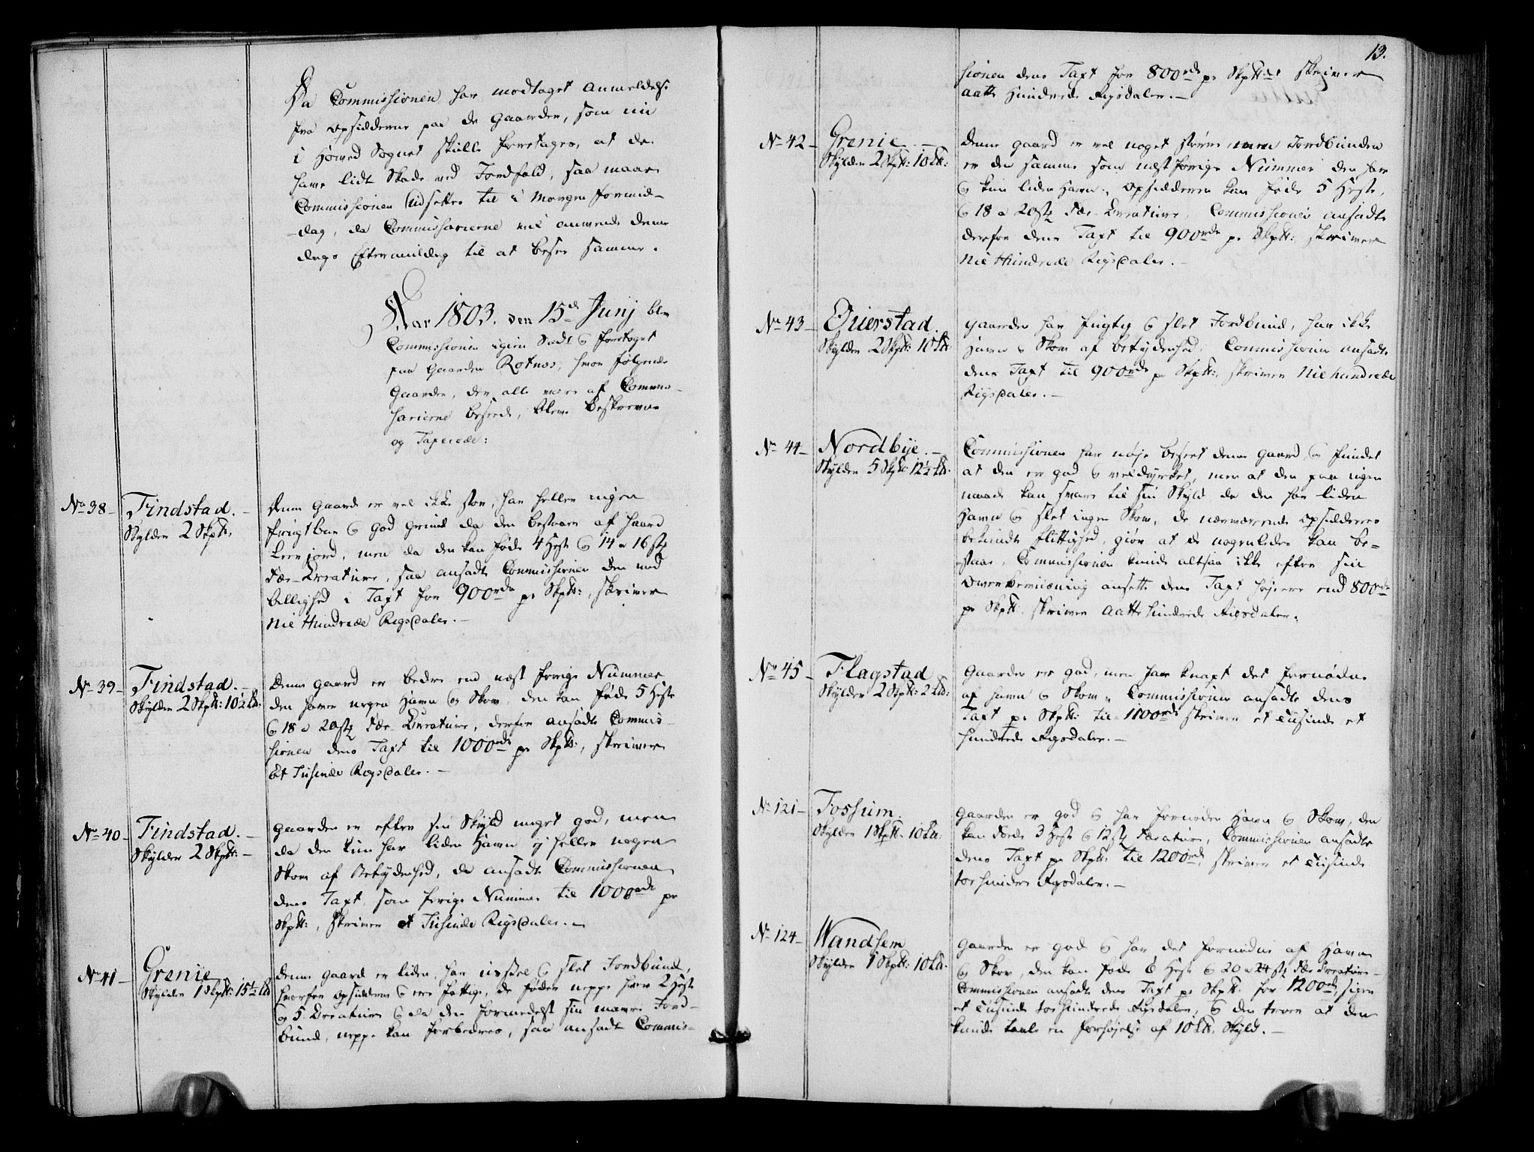 Da Commissionen har modtaget Anmeldelse
fra Opsidderne paa de Gaarder, som nu
i Høved Sognet skulle foretages, at de
have lidt Skade ved Jordfald, saa maae
Commissionen Udsettes til i Morgen formid-
dag, da Commissarierne vil anvende denne
Dags Eftermiddag til at besee samme.
Aar 1803. den 15de Junij blev
Commissionen igien Sadt & foretaget
paa Gaarden Rotnes, hvor følgende
Gaarder, der alle vare af Commis-
sarierne beseede, bleve beskrevne
og Taxerede:
No 38 – Findstad. –
Skylder 2 Skp:
Denne Gaard er vel ikke stor, har heller ingen
frugtbar & god Grund da den bestaar af haard
Leerjord, men da den kan føde 4 Heste & 14 a 16 stk
Fæe-Creature, saa ansadte Commissionen den med
Billighed i Taxt for 900rdr pr Skp:, skriver
Nie Hundrede Rigsdaler. –
No 39 – Findstad. –
Skylder 2 Skp: 10½ Lb.
Denne gaard er bedre end næst forrige Nummer
den haver nogen Havn og Skov den kan føde 5 Heste
& 18 a 20 stk Fæe-Creature, derfor ansadte Commis-
sionen dens Taxt til 1000rdr pr Skp:, skriver
Et Tusinde Rigsdaler. –
No 40 – Findstad. –
Skylder 2 Skp: –
Gaarden er efter sin Skyld meget god, men
da den kun har liden Havn og heller nogen
Skov af Betydenhed, da ansadte Commissionen
dens Taxt som forrige Nummer til 1000rdr pr
Skp:, skriver et Tusinde Rigsdaler. –
No 41 – Grenie
Skylder 1 Skp: 15½ Lb
Denne gaard er liden, har & slet Jordbund,
hvorfor Opsidderen & ere fattige, de føder neppe hver 2 Heste
og 5 Creature & da den formedelst sin mavre Jord-
bund, neppe kan forbedres, saa ansadte Commis-
13.
sionen dens Taxt for 800rdr pr Skp: skriver
aatte Hundrede Rigsdaler. –
No 42 – Grenie. –
Skylder 2 Skp: 10 Lb:
Denne gaard er vel noget større, men Jordbunden
er den samme som næst forrige Nummer den har
& kun liden Havn, Opsidderen kan føde 5 Heste,
& 18 a 20 stk Fæe-Creature, Commissionen ansadte
derfor dens Taxt til 900rdr pr Skp: skriver
Nie Hundrede Rigsdaler. –
No 43 – Evierstad.
Skylder 2 Skp: 10 Lb
Gaarden har & slet Jordbund, har ikke
Havn & Skov af betydenhed, Commissionen ansadte
dens Taxt til 900rdr pr Skp:, skriver Nie hundrede
Rigsdaler. –
No 44 – Nordbye. –
Skylder 5 Skp 12½ Lb.
Commissionen har nøje beseet denne gaard & fundet
at den er god & veldyrket, men at den paa ingen
maade kan svare til sin Skyld da den har liden
Havn & slet ingen Skov, de nærværende Opsidderes
bekiendte flittighed, giør at de nogenledes kan be-
staae, Commissionen kunde altsaa ikke efter sin
Overbeviisning ansætte dens Taxt høiere end 800rdr
pr Skp: skriver aatte hundrede Rigsdaler.
No 45 – Flagstad
Skylder 2 Skp: 2 Lb:
Gaarden er god, men har knapt det fornødne
af Havn & Skov, Commissionen ansadte dens
Taxt pr Skp: til 1100rdr skriver et Tusinde et
hundrede Rigsdaler. –
No 121 – Fossum
Skylder 1 Skp: 10 Lb:
Gaarden er god & har fornøden Havn & Skov, den
kan føde 3 Heste & 12 stk Creature, Commissionen ansadte
dens Taxt pr Skp: til 1200rdr skriver et Tusinde
tohundrede Rigsdaler. –
No 124 – Wandsem
Skylder 1 Skp: 10 Lb:
Gaarden er god & har det fornødne af Havn
& Skov, den kan føde 6 Heste & 20 a 24 stk Fæe Creature –
Commissionen ansadte dens Taxt pr Skp: for 1200rdr siger
et Tusinde tohundrede Rigsdaler, & den troer at den
kunde taale en forhøielse af 10 Lb: Skyld. –